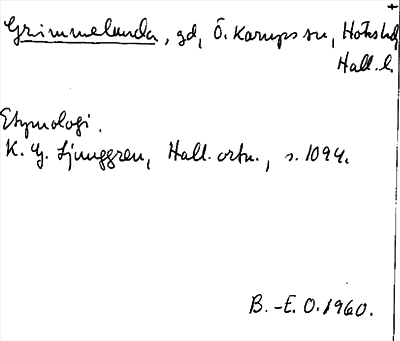 Grimmelunda, gd, Ö. Karups sn, Höks hd,
Hall. l.
Etymologi.
K. G. Ljunggren, Hall. ortn., s. 109 4.
B.-E. O. 1960.